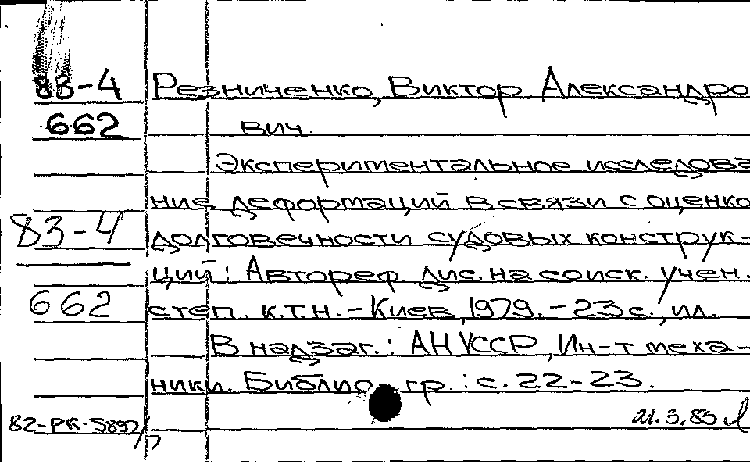 83-4 Резниченко, Виктор Александро
662 вич.
Экспериментальное исследова
ние деформаций в связи с оценко
83-4 долговечности судовых конструк-
ций: Автореф. дис. на соиск. учен.
662 степ. к.т.н. - Киев, 1979. - 23 с., ил.
В надзаг.: АН УССР, Ин-т меха-
ники. Библиогр.: с. 22-23.
21.3.83
82-РК-5897/17